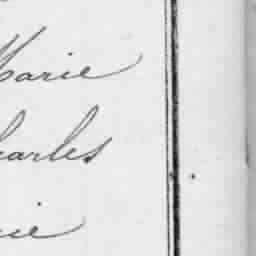 Marie
harles
ie